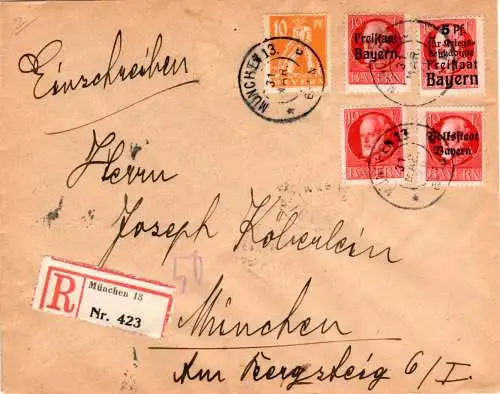 Einschreiben
10 Pf
Freistaat
Bayern
10 BAYERN
5 Pf.
für Kriegs-
beschädigte
Freistaat
Bayern
10 BAYERN 10
Volksstaat
Bayern
BAYERN
MÜNCHEN 13.
31 MÄR
Herrn
Joseph Köberlein
München
Am Bergsteig 6/I.
50
R
München 13
Nr. 423